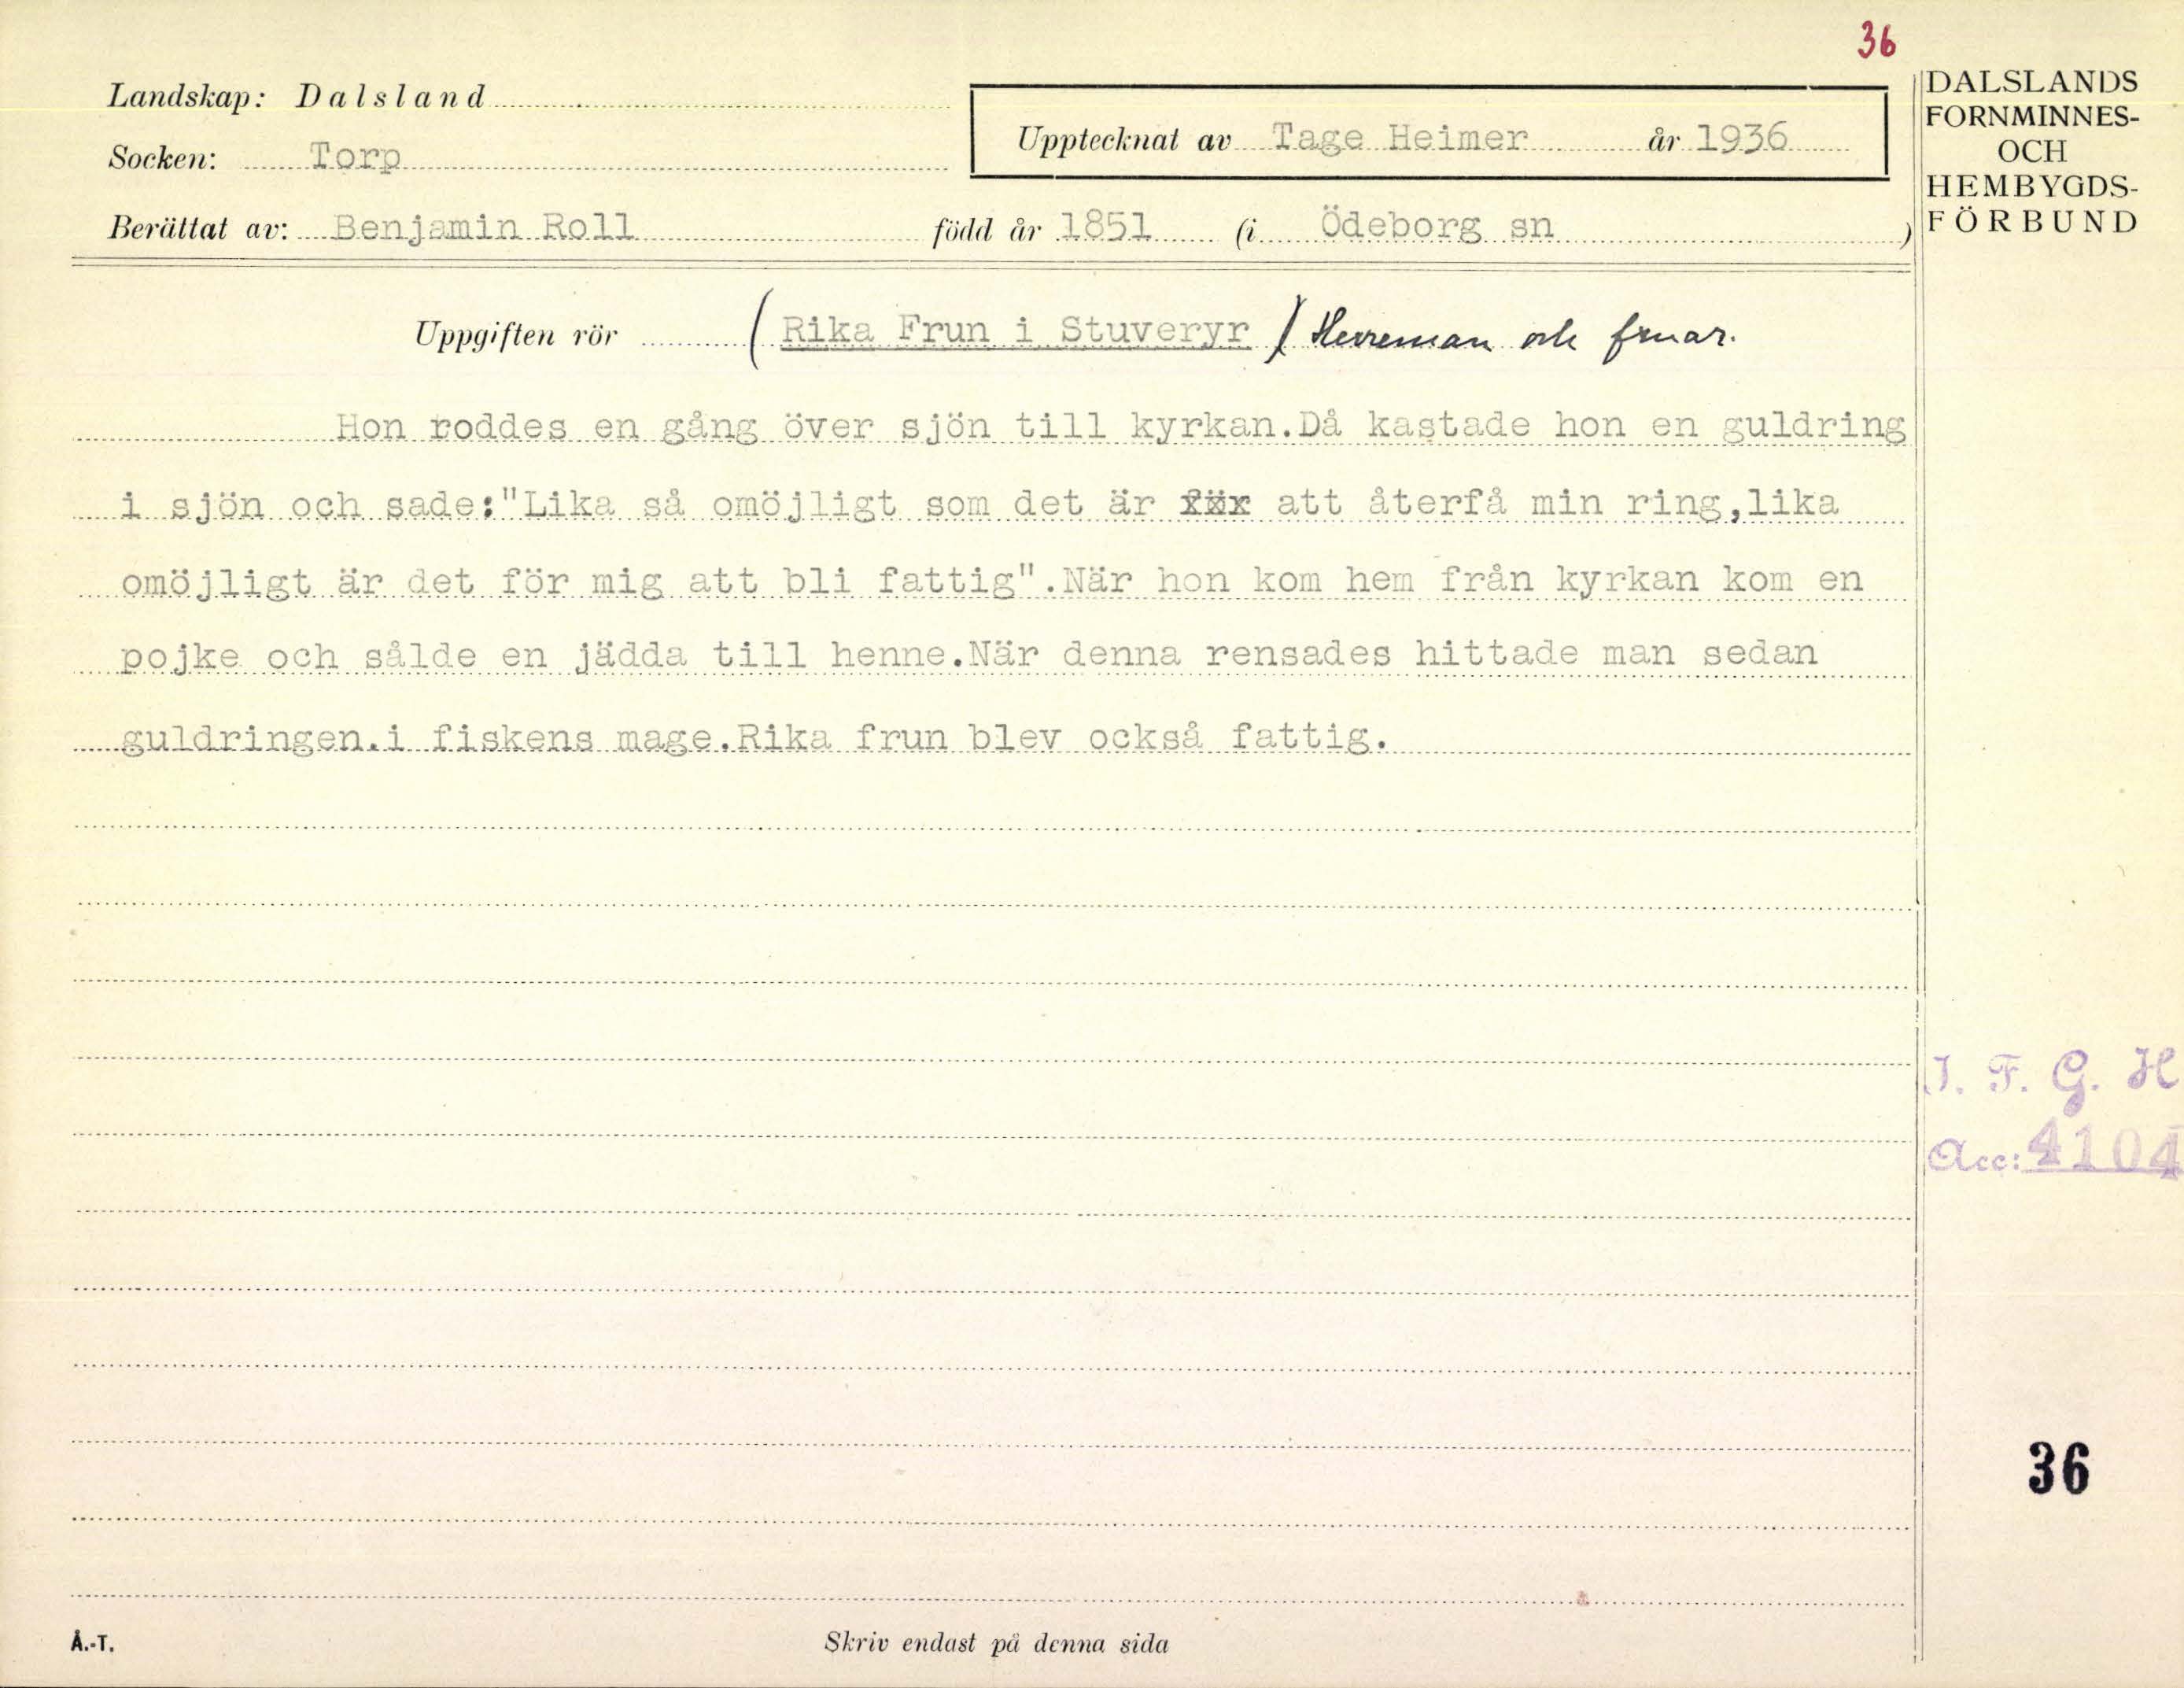 36
Landskap: Dalsland
Socken: Torp
Upptecknat av Tage Heimer år 1936
Berättat av: Benjamin Roll född år 1851 (i Ödeborg sn )
DALSLANDS
FORNMINNES-
OCH
HEMBYGDS-
FÖRBUND
Uppgiften rör (Rika Frun i Stuveryr) Herreman och fruar.
Hon roddes en gång över sjön till kyrkan.Då kastade hon en guldring
i sjön och sade:"Lika så omöjligt som det är att återfå min ring,lika
omöjligt är det för mig att bli fattig".När hon kom hem från kyrkan kom en
pojke och sålde en jädda till henne.När denna rensades hittade man sedan
guldringen.i fiskens mage.Rika frun blev också fattig.
I. F. G. H
Acc: 4104
36
Å.-T.
Skriv endast på denna sida